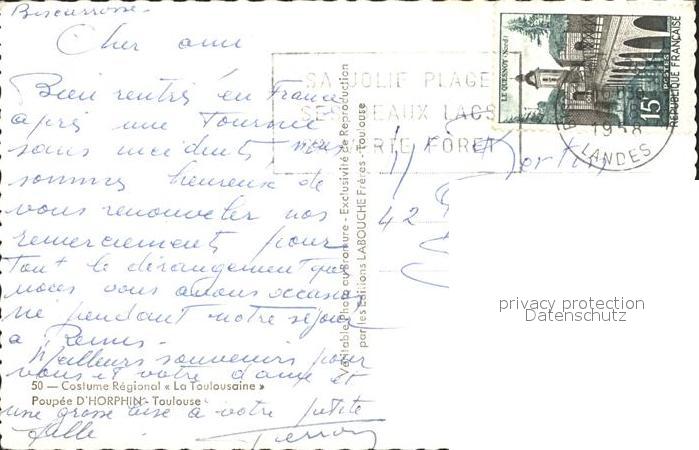 Biscarrosse.
Cher ami
Bien rentrés en France
après une Tournée
sans incidents, nous
sommes heureux de
vous renouveler nos
remerciements pour
tout le dérangement que
nous vous avons occasion
né pendant notre séjour
a
Meilleurs souvenirs pour
vous et votre dame et
une grosse bise à votre petite
fille
50 — Costume Régional « La Toulousaine »
Poupée D'HORPHIN - Toulouse
Véritable Photo au Bromure - Exclusivité de Reproduction
par les Editions LABOUCHE Frères - Toulouse
SA JOLIE PLAGE
SES BEAUX LACS
FORET
LE QUESNOY (Nord)
15F
POSTES
REPUBLIQUE FRANÇAISE
1958
LANDES
42
privacy protection
Datenschutz